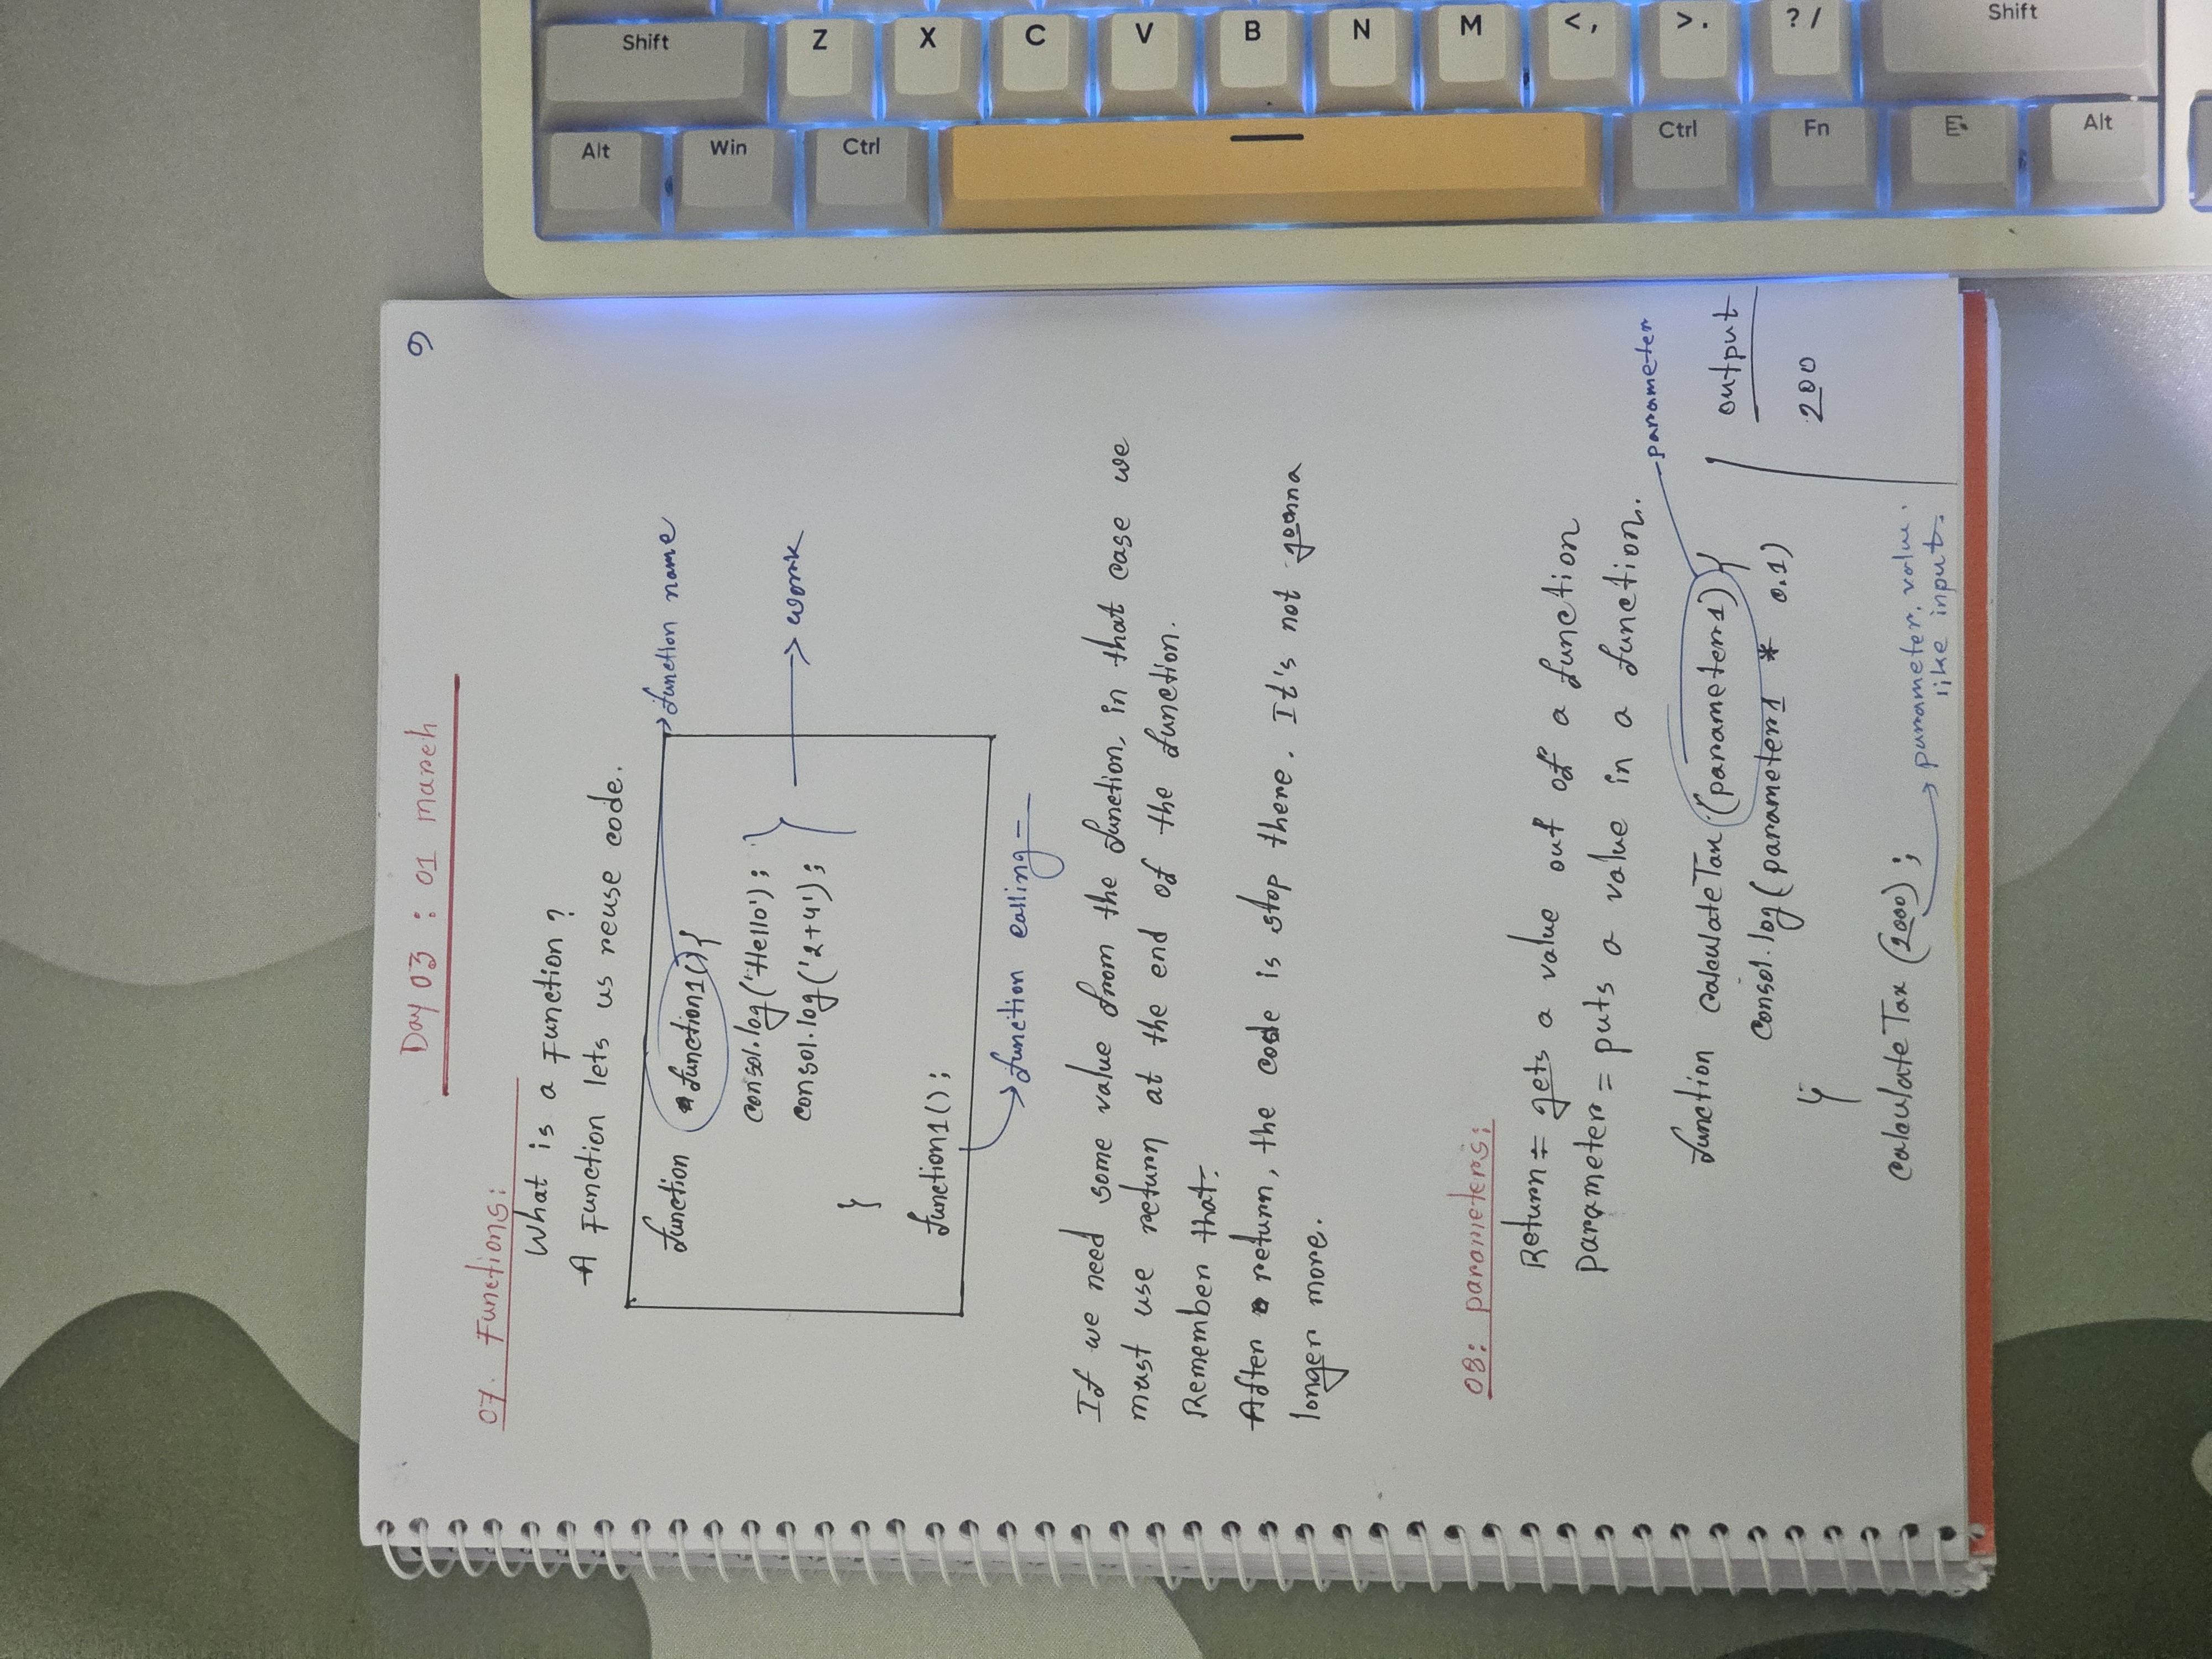 Day 03 : 01 march
6
07. Functions:
What is a Function ?
A Function lets us reuse code.
function function1(){
function name
consol.log('Hello');
consol.log('2+4');
work
}
function1();
function calling
If we need some value from the function, in that case we
must use return at the end of the function.
Remember that:
After return, the code is stop there. It's not goonna
longer more.
08: parameters:
Return = gets a value out of a function
parameter = puts a value in a function.
parameter
function calculateTax (parameter1) {
consol.log(parameter1 * 0.1)
}
output
200
calculateTax (2000);
parameter. value.
like input.
Alt
Win
Ctrl
Ctrl
Fn
Alt
Shift
Z
X
C
V
B
N
M
< ,
> .
? /
Shift